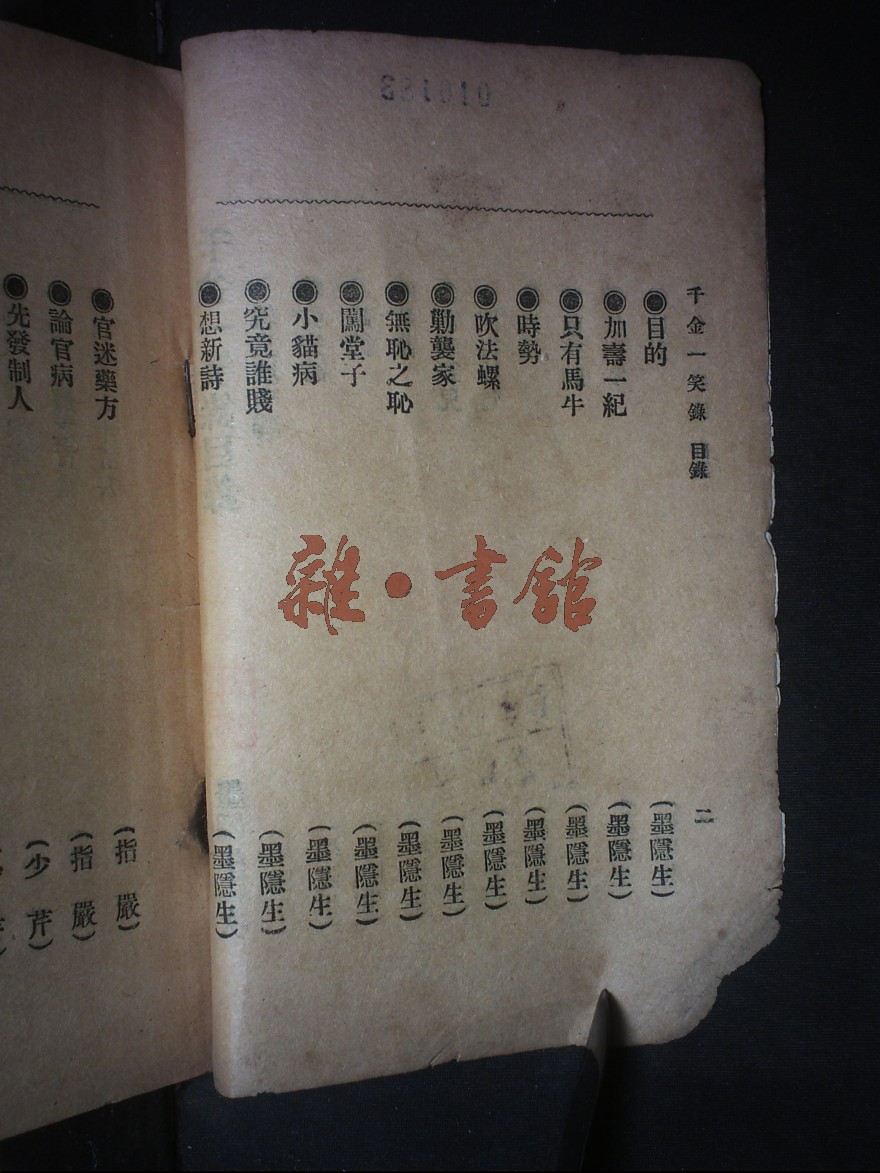 千金一笑錄 目錄 二
◉目的 (墨隱生)
◉加壽一紀 (墨隱生)
◉只有馬牛 (墨隱生)
◉時勢 (墨隱生)
◉吹法螺 (墨隱生)
◉勦襲家 (墨隱生)
◉無恥之恥 (墨隱生)
◉闖堂子 (墨隱生)
◉小貓病 (墨隱生)
◉究竟誰賤 (墨隱生)
◉想新詩 (墨隱生)
◉官迷藥方 (指嚴)
◉論官病 (指嚴)
◉先發制人 (少芹)
雜·書館